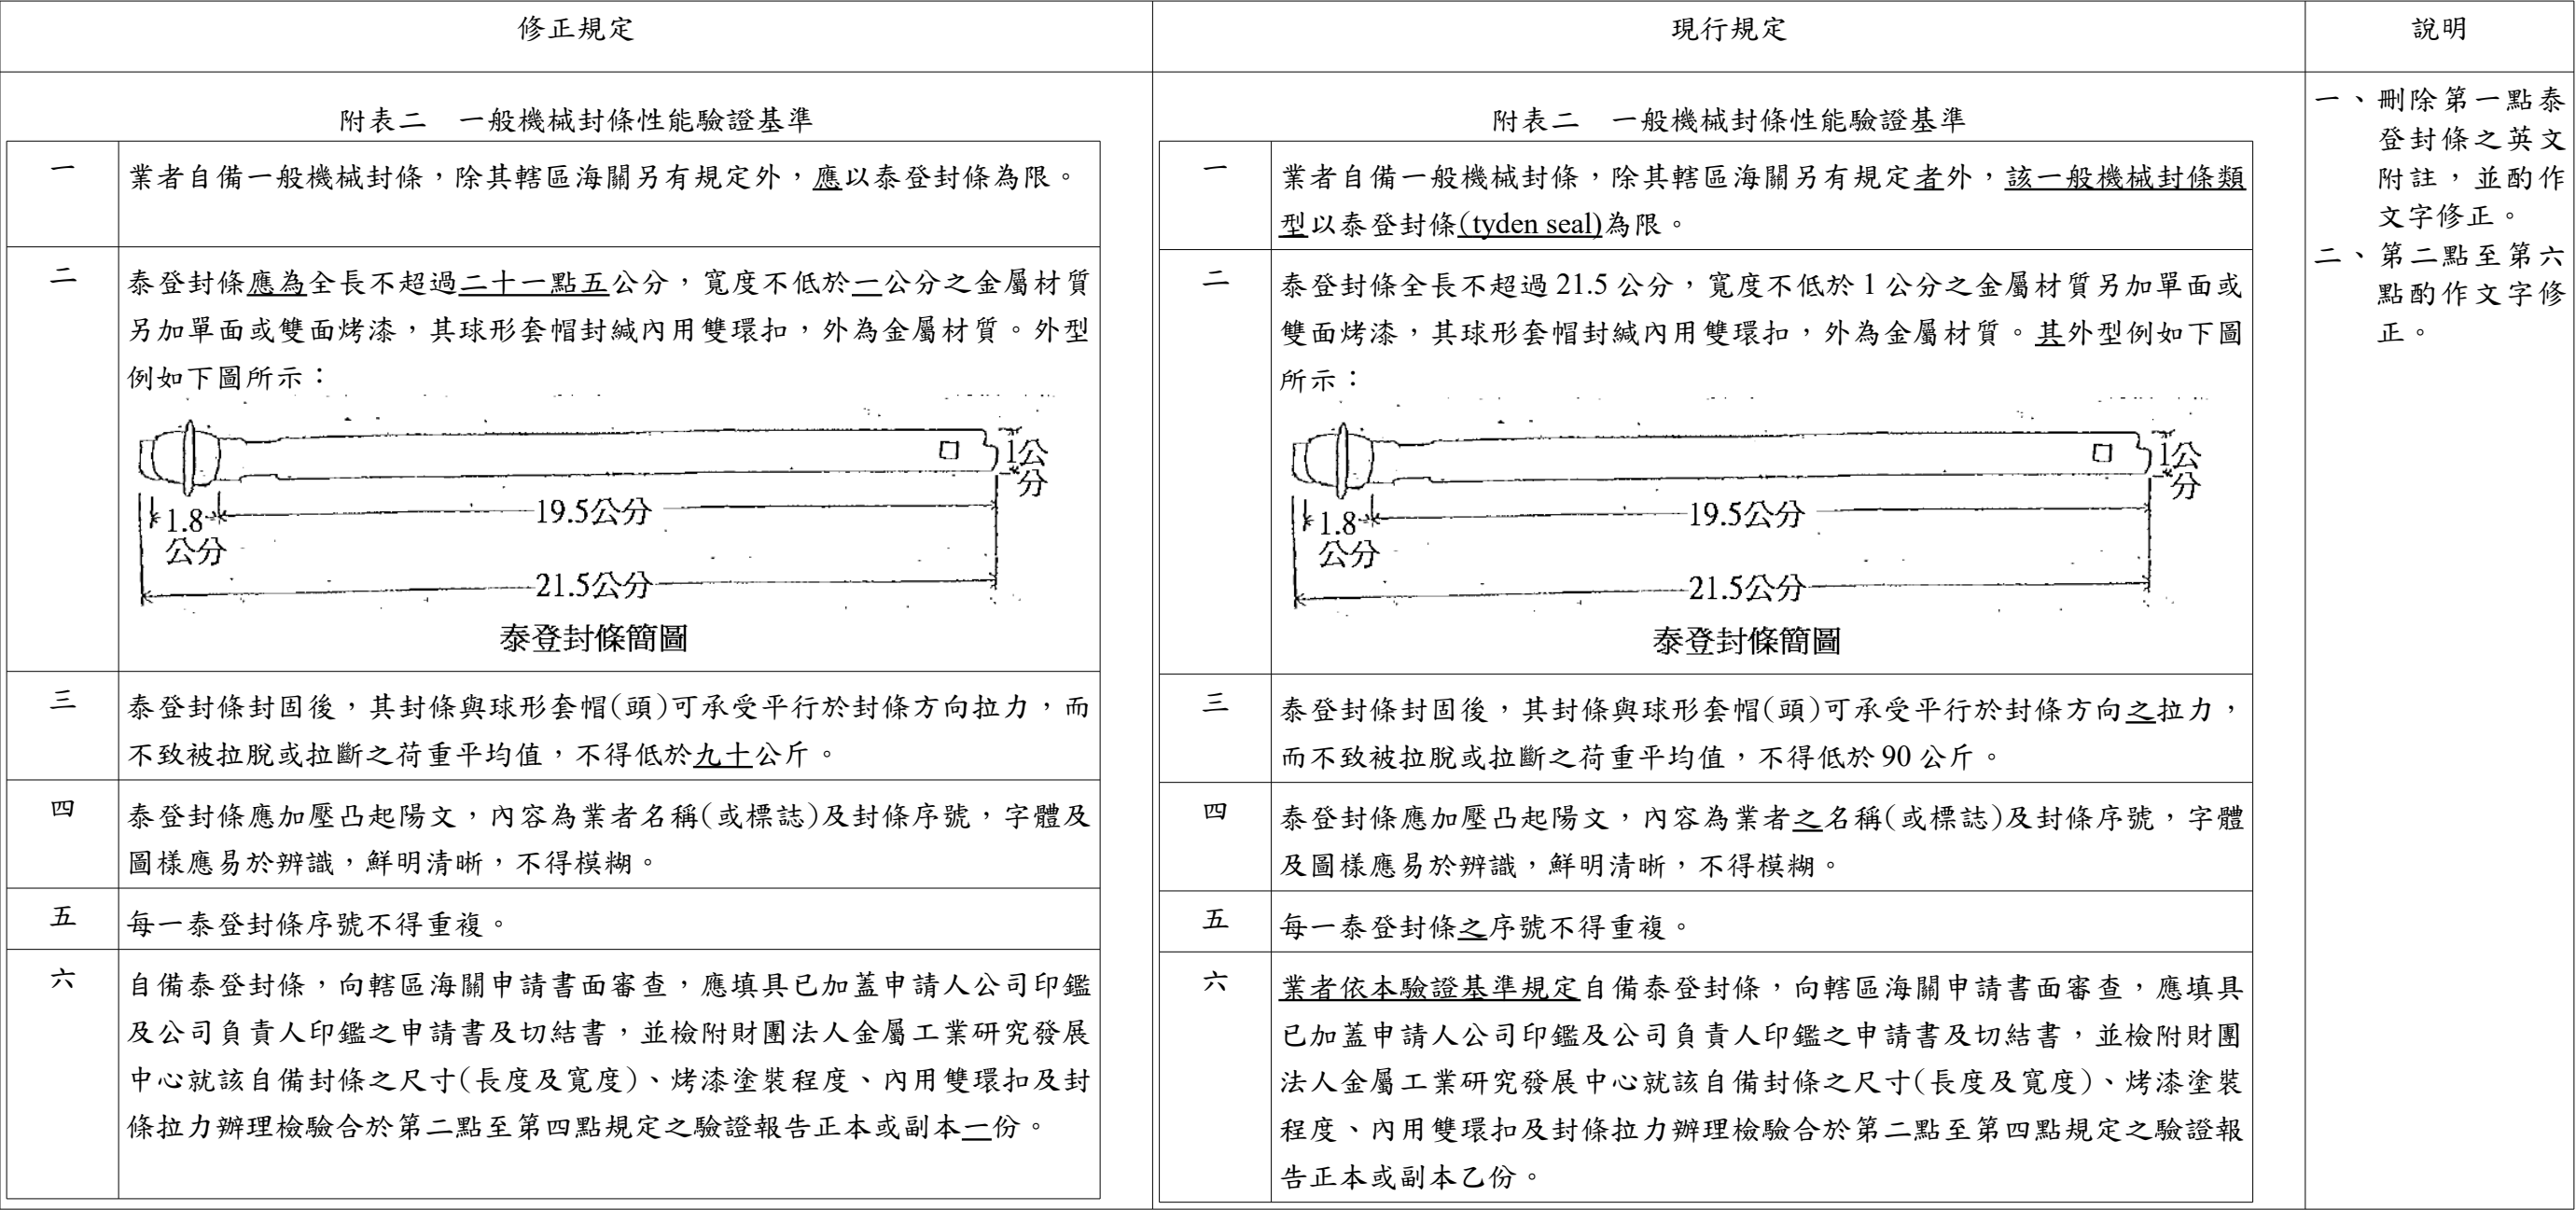 修正規定
現行規定
說明
附表二　一般機械封條性能驗證基準
一
業者自備一般機械封條，除其轄區海關另有規定外，應以泰登封條為限。
二
泰登封條應為全長不超過二十一點五公分，寬度不低於一公分之金屬材質
另加單面或雙面烤漆，其球形套帽封緘內用雙環扣，外為金屬材質。外型
例如下圖所示：
1公
分
1.8
公分
19.5公分
21.5公分
泰登封條簡圖
三
泰登封條封固後，其封條與球形套帽(頭)可承受平行於封條方向拉力，而
不致被拉脫或拉斷之荷重平均值，不得低於九十公斤。
四
泰登封條應加壓凸起陽文，內容為業者名稱(或標誌)及封條序號，字體及
圖樣應易於辨識，鮮明清晰，不得模糊。
五
每一泰登封條序號不得重複。
六
自備泰登封條，向轄區海關申請書面審查，應填具已加蓋申請人公司印鑑
及公司負責人印鑑之申請書及切結書，並檢附財團法人金屬工業研究發展
中心就該自備封條之尺寸(長度及寬度)、烤漆塗裝程度、內用雙環扣及封
條拉力辦理檢驗合於第二點至第四點規定之驗證報告正本或副本一份。
附表二　一般機械封條性能驗證基準
一
業者自備一般機械封條，除其轄區海關另有規定者外，該一般機械封條類
型以泰登封條(tyden seal)為限。
二
泰登封條全長不超過 21.5 公分，寬度不低於 1 公分之金屬材質另加單面或
雙面烤漆，其球形套帽封緘內用雙環扣，外為金屬材質。其外型例如下圖
所示：
1公
分
1.8
公分
19.5公分
21.5公分
泰登封條簡圖
三
泰登封條封固後，其封條與球形套帽(頭)可承受平行於封條方向之拉力，
而不致被拉脫或拉斷之荷重平均值，不得低於 90 公斤。
四
泰登封條應加壓凸起陽文，內容為業者之名稱(或標誌)及封條序號，字體
及圖樣應易於辨識，鮮明清晰，不得模糊。
五
每一泰登封條之序號不得重複。
六
業者依本驗證基準規定自備泰登封條，向轄區海關申請書面審查，應填具
已加蓋申請人公司印鑑及公司負責人印鑑之申請書及切結書，並檢附財團
法人金屬工業研究發展中心就該自備封條之尺寸(長度及寬度)、烤漆塗裝
程度、內用雙環扣及封條拉力辦理檢驗合於第二點至第四點規定之驗證報
告正本或副本乙份。
一、刪除第一點泰
登封條之英文
附註，並酌作
文字修正。
二、第二點至第六
點酌作文字修
正。